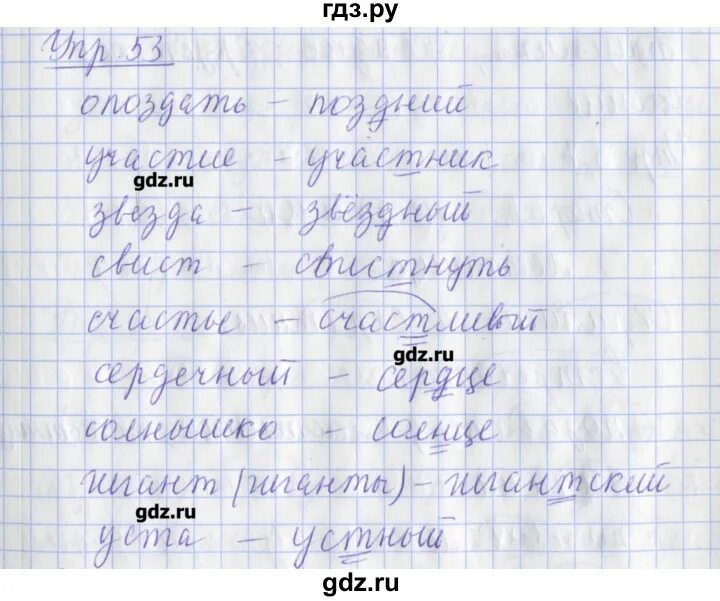 гдз.ру
Упр. 53
опоздать – поздний
участие – участник
gdz.ru
звезда – звёздный
свист – свистнуть
счастье – счастливый
gdz.ru
сердечный – сердце
солнышко – солнце
гигант (гиганты) – гигантский
gdz.ru
уста – устный
gdz.ru